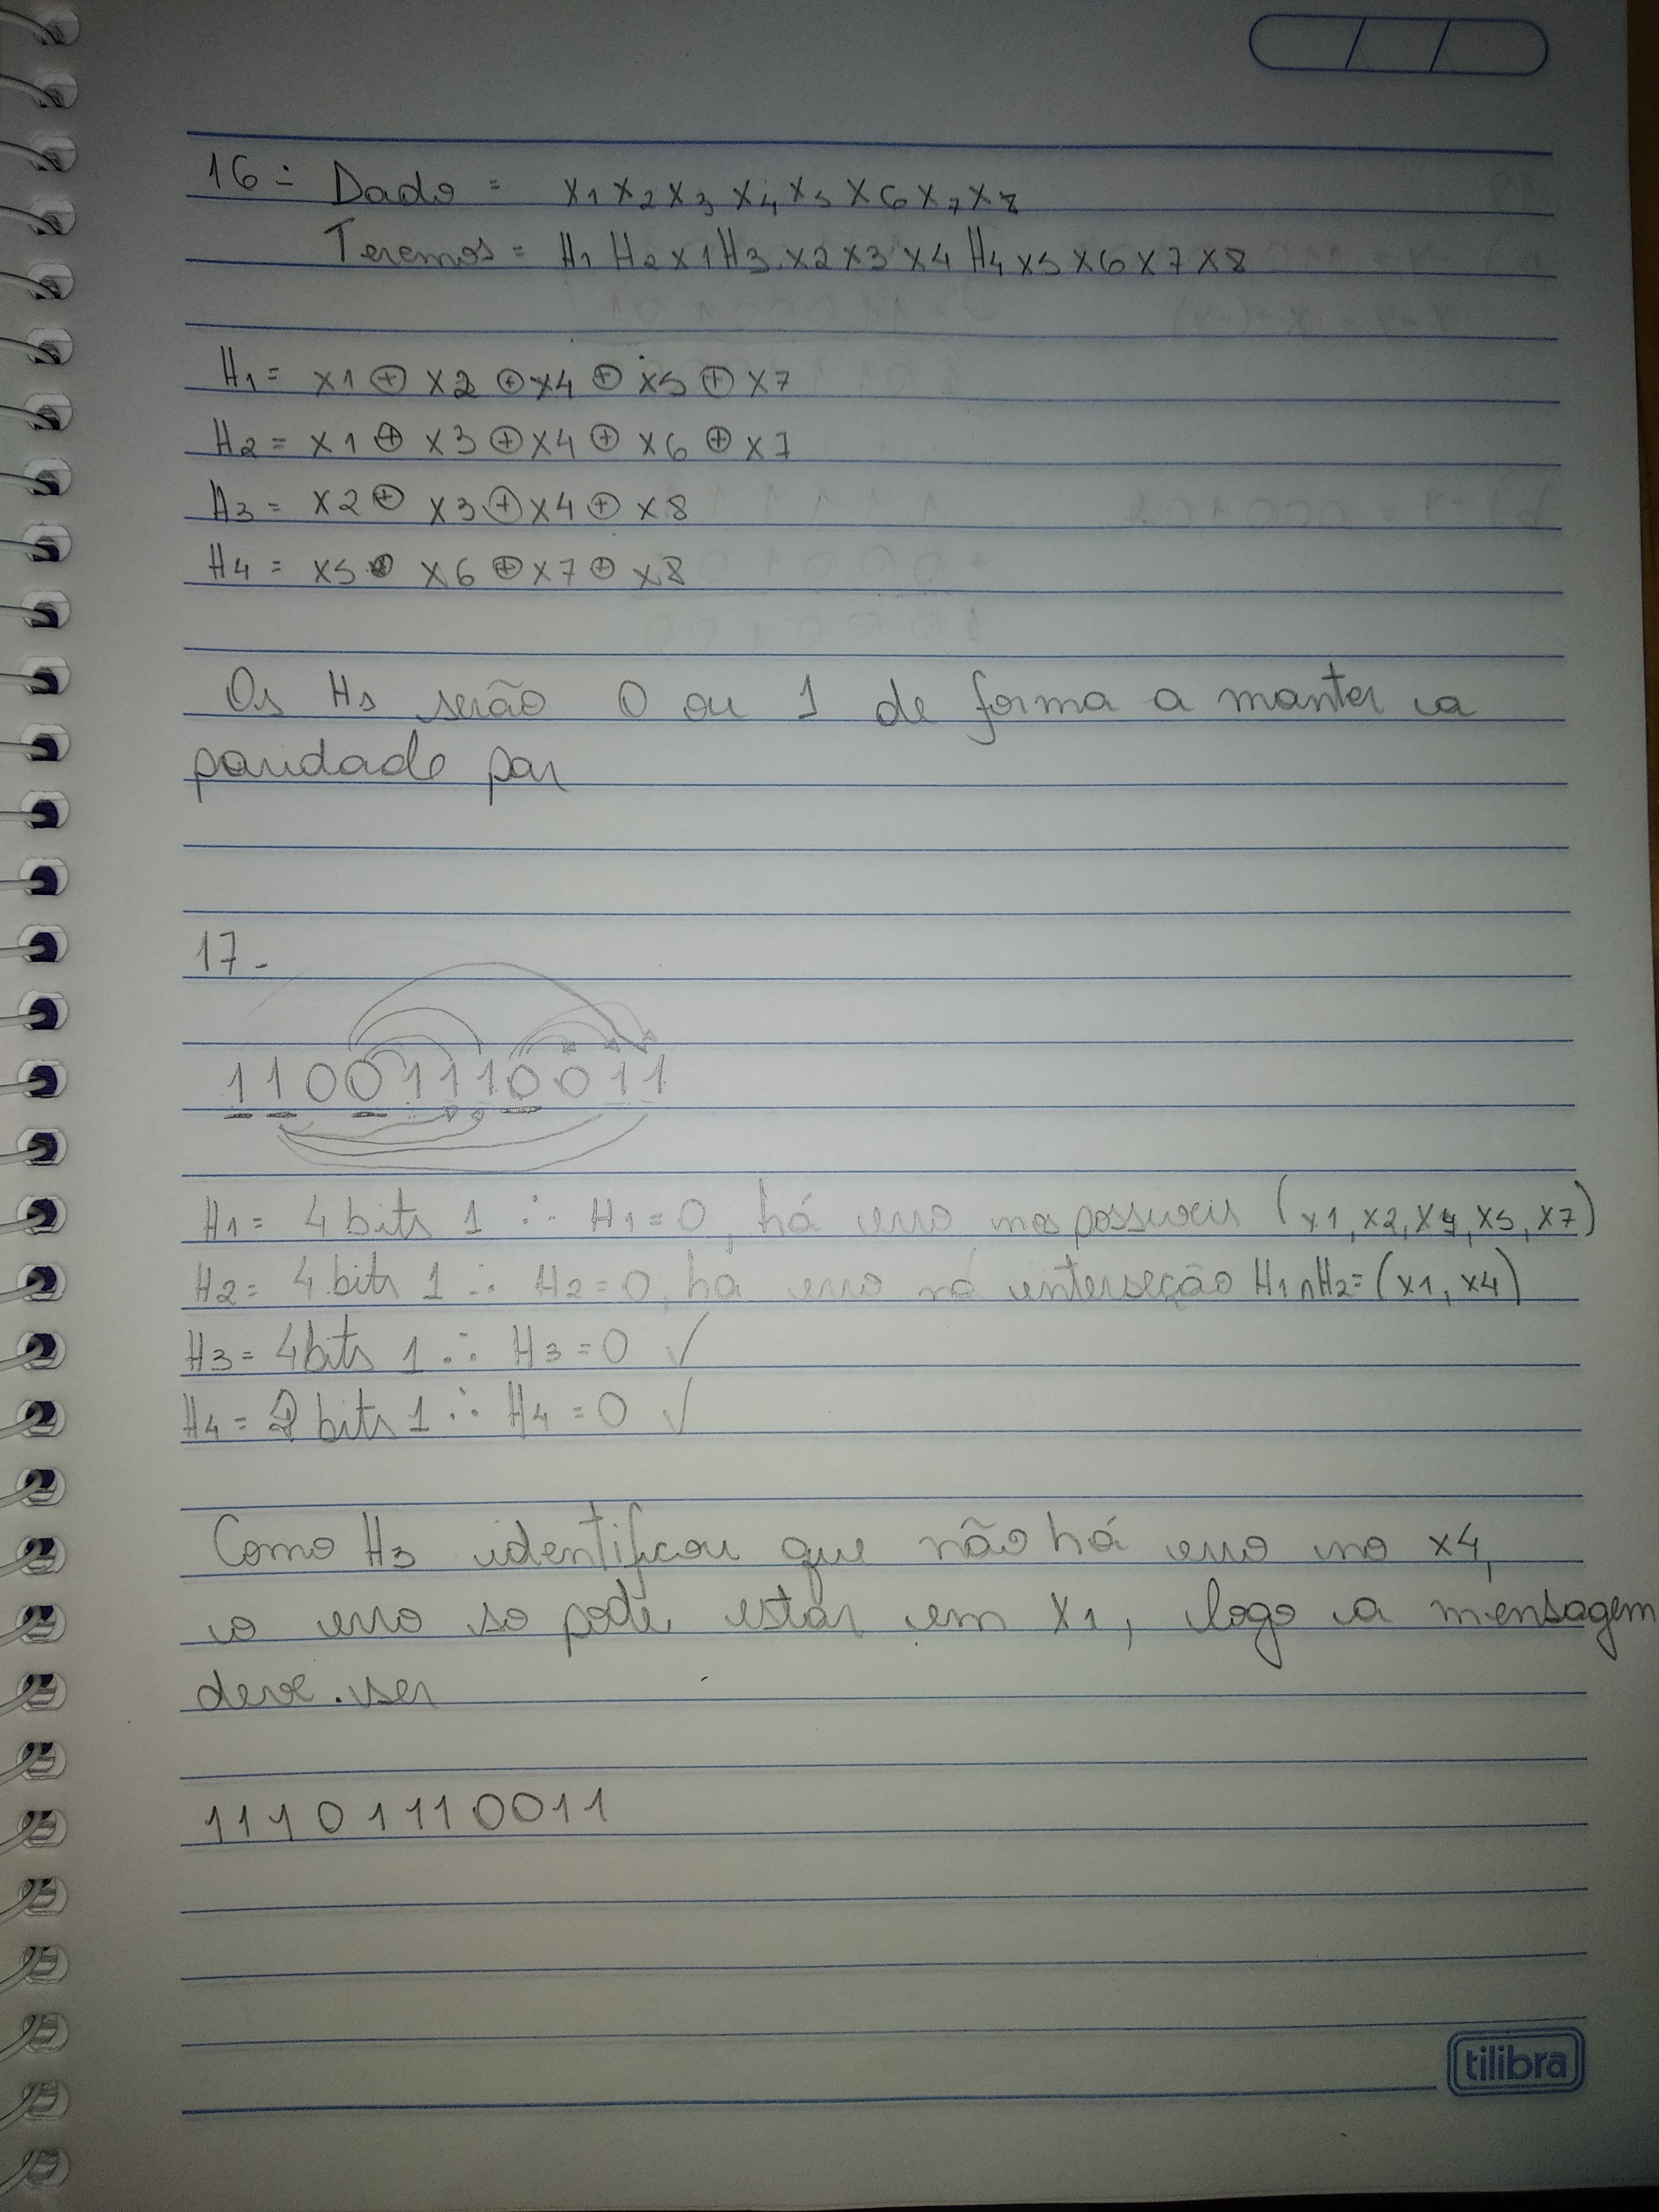 16 - Dado = x1 x2 x3 x4 x5 x6 x7 x8
Teremos = H1 H2 x1 H3 x2 x3 x4 H4 x5 x6 x7 x8
H1 = x1 ⊕ x2 ⊕ x4 ⊕ x5 ⊕ x7
H2 = x1 ⊕ x3 ⊕ x4 ⊕ x6 ⊕ x7
H3 = x2 ⊕ x3 ⊕ x4 ⊕ x8
H4 = x5 ⊕ x6 ⊕ x7 ⊕ x8
Os Hs serão 0 ou 1 de forma a manter a
paridade par
17 -
11001110011
H1 = 4 bits 1 ∴ H1 = 0, há erro nos possíveis (x1, x2, x4, x5, x7)
H2 = 4 bits 1 ∴ H2 = 0, há erro na interseção H1 ∩ H2 = (x1, x4)
H3 = 4 bits 1 ∴ H3 = 0 ✓
H4 = 2 bits 1 ∴ H4 = 0 ✓
Como H3 identificou que não há erro no x4,
o erro so pode estar em x1, logo a mensagem
deve ser
11101110011
tilibra